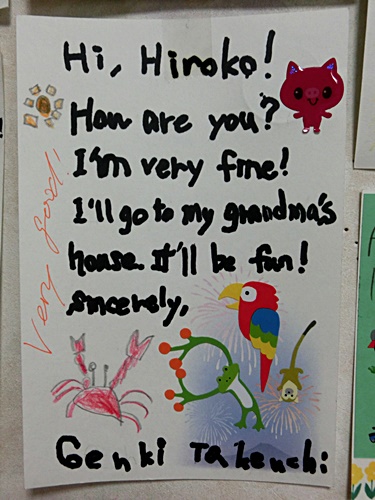 Hi, Hiroko!
How are you?
I'm very fine!
I'll go to my grandma's
house. It'll be fun!
sincerely,
Very good!
Genki Takeuchi